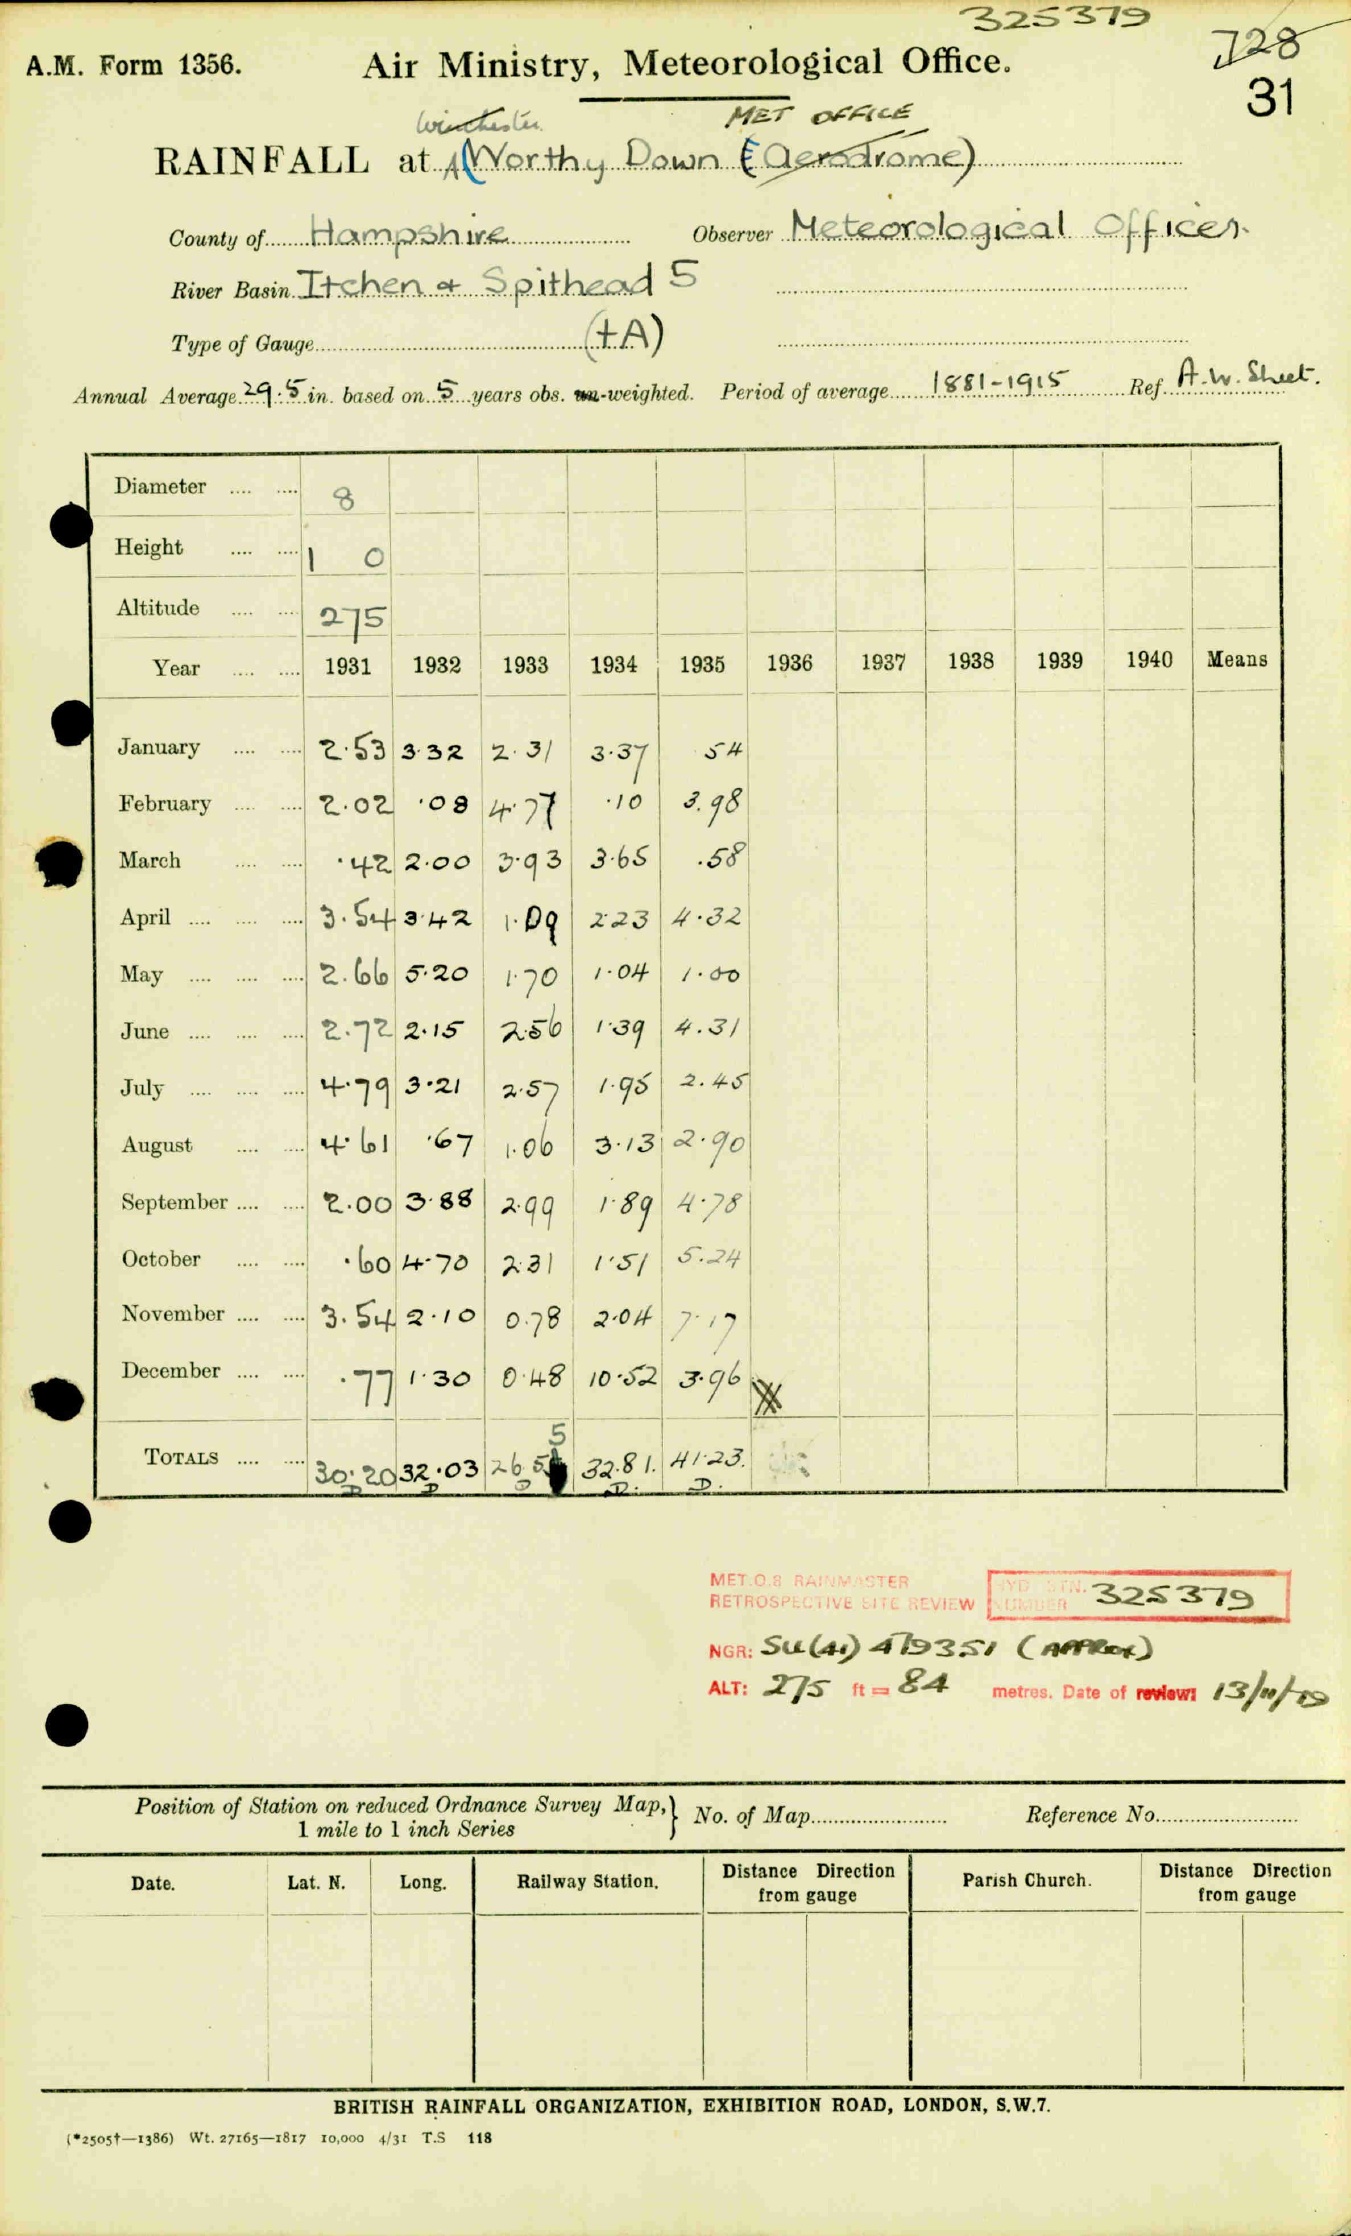 325379
A.M. Form 1356. Air Ministry, Meteorological Office. 728
31
Winchester MET OFFICE
RAINFALL at A(Worthy Down (Aerodrome)
County of Hampshire Observer Meteorological Officer.
River Basin Itchen & Spithead 5
Type of Gauge (+A)
Annual Average 29.5 in. based on 5 years obs. un-weighted. Period of average 1881-1915 Ref. A.W. Sheet.
Diameter .... .... 8
Height .... .... 1 0
Altitude .... .... 275
Year .... .... 1931 1932 1933 1934 1935 1936 1937 1938 1939 1940 Means
January .... .... 2.53 3.32 2.31 3.37 54
February .... .... 2.02 .08 4.77 .10 3.98
March .... .... .42 2.00 3.93 3.65 .58
April .... .... .... 3.54 3.42 1.09 2.23 4.32
May .... .... .... 2.66 5.20 1.70 1.04 1.00
June .... .... .... 2.72 2.15 2.56 1.39 4.31
July .... .... .... 4.79 3.21 2.57 1.95 2.45
August .... .... 4.61 .67 1.06 3.13 2.90
September .... .... 2.00 3.88 2.99 1.89 4.78
October .... .... .60 4.70 2.31 1.51 5.24
November .... .... 3.54 2.10 0.78 2.04 7.17
December .... .... .77 1.30 0.48 10.52 3.96
5
TOTALS .... .... 30.20 32.03 26.5 32.81. 41.23.
D D D D. D.
MET.O.8 RAINMASTER
RETROSPECTIVE SITE REVIEW HYD. STN. NUMBER 325379
NGR: SU(41) 479351 (APPROX)
ALT: 275 ft = 84 metres. Date of review: 13/11/79
Position of Station on reduced Ordnance Survey Map,} No. of Map Reference No.
1 mile to 1 inch Series
Date. Lat. N. Long. Railway Station. Distance Direction from gauge Parish Church. Distance Direction from gauge
BRITISH RAINFALL ORGANIZATION, EXHIBITION ROAD, LONDON, S.W.7.
(*2505†—1386) Wt. 27165—1817 10,000 4/31 T.S 118